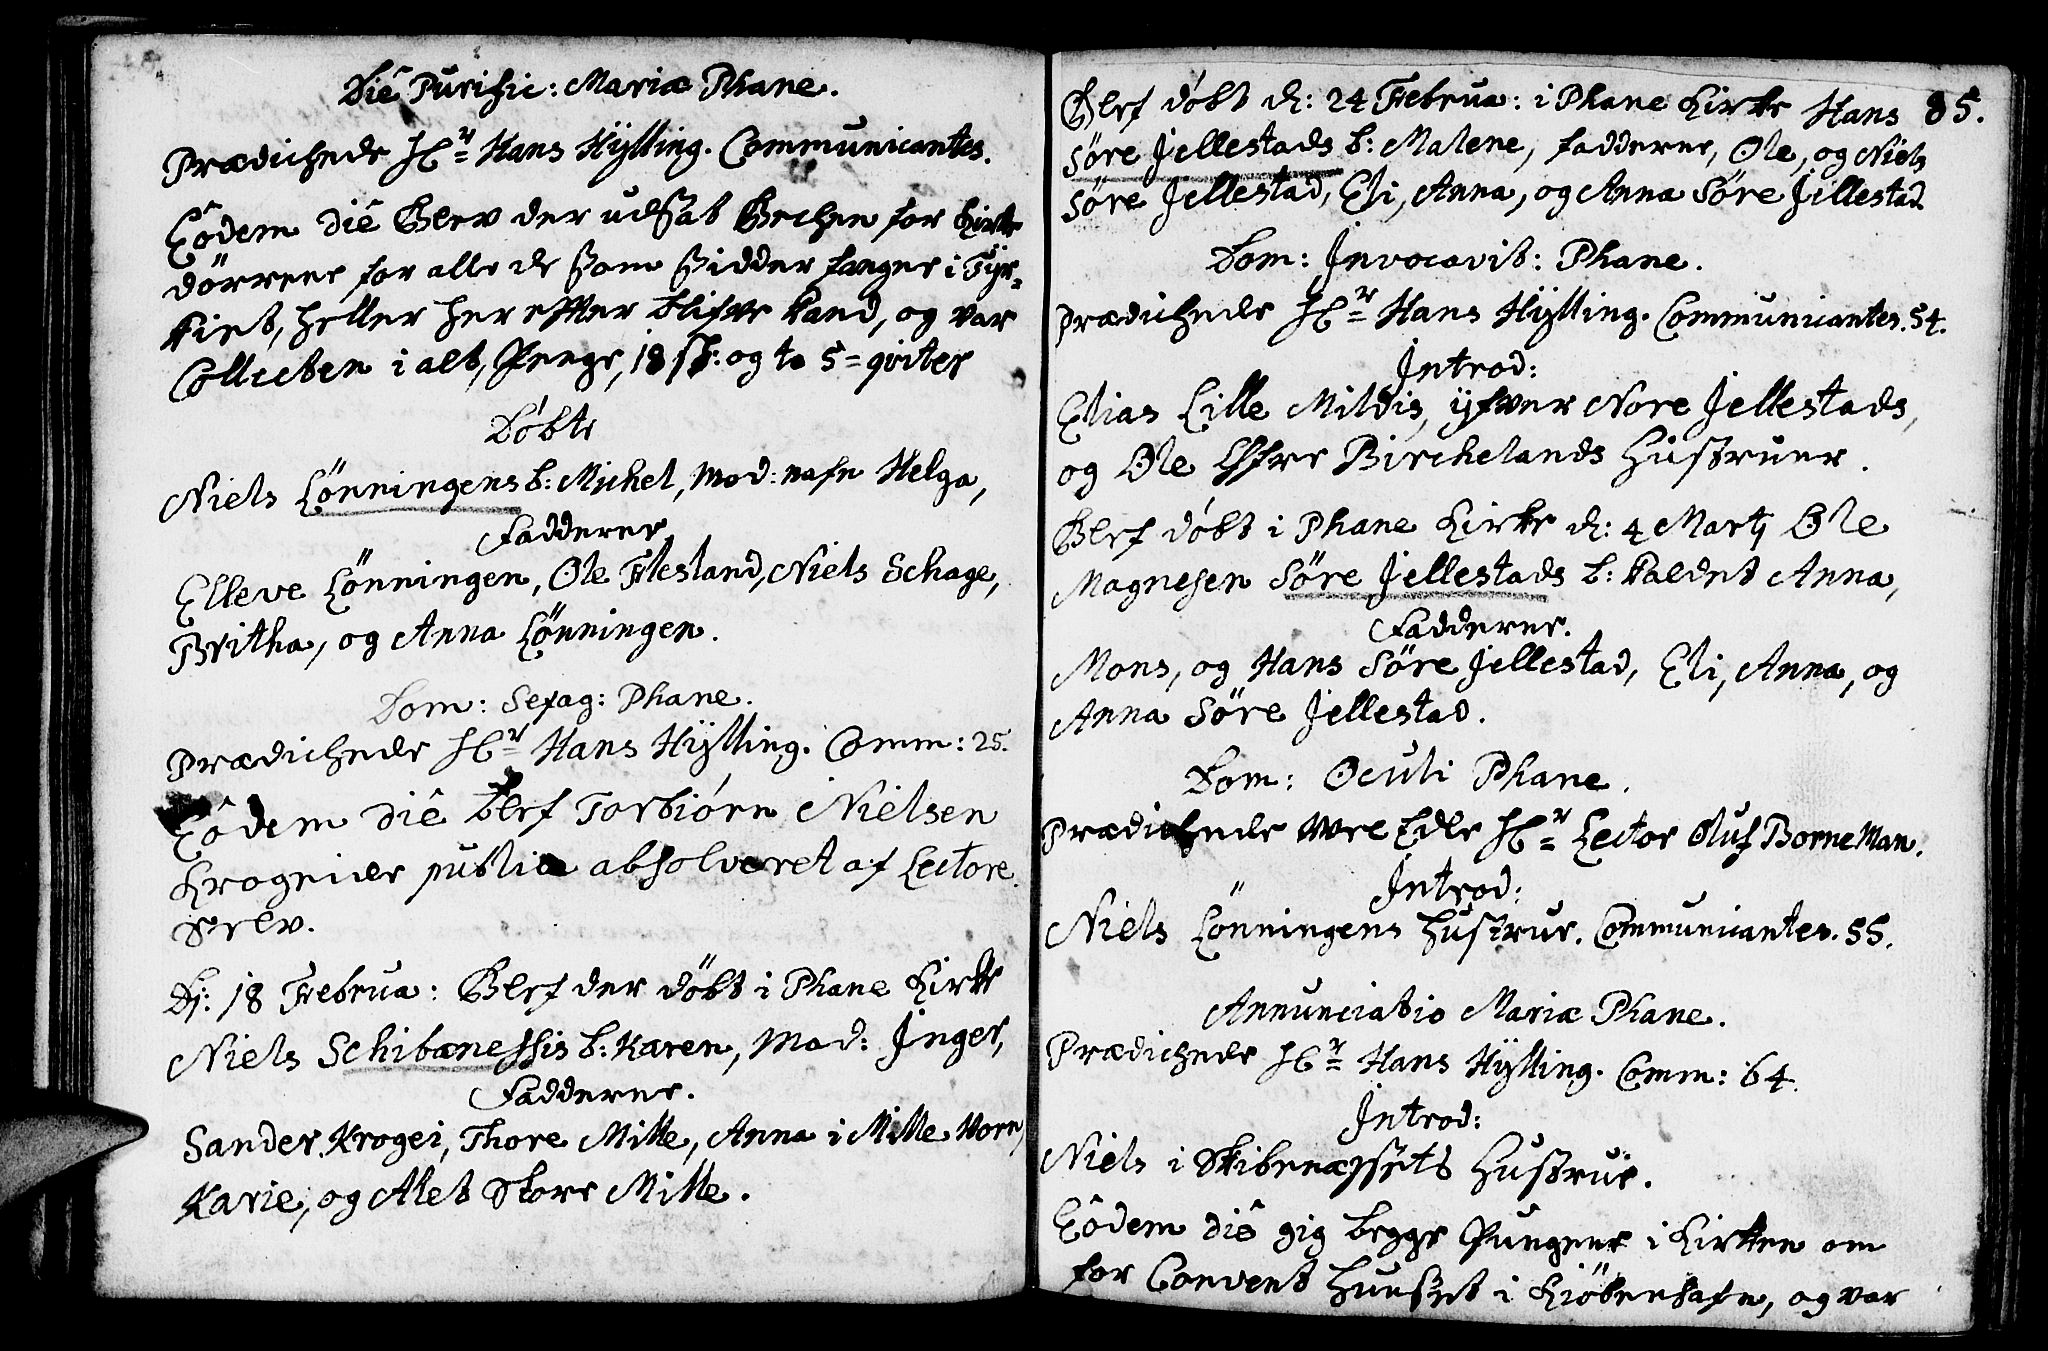 Die Purific: Mariæ Phane.
Prædichede Hr Hans Hylling. Communicantes.
Eôdem diê Blev der udsat Becken for Kirke
dörrene for alle de som sidder fangne i Tyr-
kiet, heller her efter blifve kand, og var
Collecten i alt, Penge, 18 sk: og to 5=
Döbte
Niels Lönningens b: Michel, Mod: nafn Helga,
Fadderne
Elleve Lönningen, Ole Flesland, Niels Schage,
Britha, og Anna Lönningen.
Dom: Sexag: Phane.
Prædichede Hr Hans Hylling. Comm: 25.
Eôdem diê blef Torbiörn Nielsen
Krogeide publice absolveret af Lectore
Selv.
D: 18 Februa: Blef der döbt i Phane Kirke
Niels Schibænessis b: Karen, Mod: Inger,
Fadderne.
Sander Krogei, Thore Milde, Anna i Milde Vorn
Karie, og Alet Store Milde.
Blef döbt d: 24 Februa: i Phane Kirke Hans 85.
Söre Jellestads b: Malene, fadderne, Ole, og Niels
Söre Jellestad, Eli, Anna, og Anna Söre Jellestad
Dom: Invocavit: Phane.
Prædichede Hr Hans Hylling. Communicantes. 54.
Introd:
Elias Lille Mildis, ifver Nore Jellestads,
og Ole Öfre Birchelands Hustruer.
Blef döbt i Phane Kirke d: 4 Martj Ole
Magnesen Söre Jellestads b: kaldet Anna,
Fadderne.
Mons, og Hans Söre Jellestad, Eli, Anna, og
Anna Söre Jellestad.
Dom: Oculi Phane.
Prædichede Vel Edle Hr Lector Oluf BorneMan.
Introd:
Niels Lönningens Hustrue. Communicantes. 55.
Annunciatio Mariæ Phane.
Prædichede Hr Hans Hylling. Comm: 64.
Introd:
Niels i Skibenæssets Hustrue.
Eôdem diê gig begge Pungene i Kirken om
for Convent Huuset i Kiöbenhafn, og var